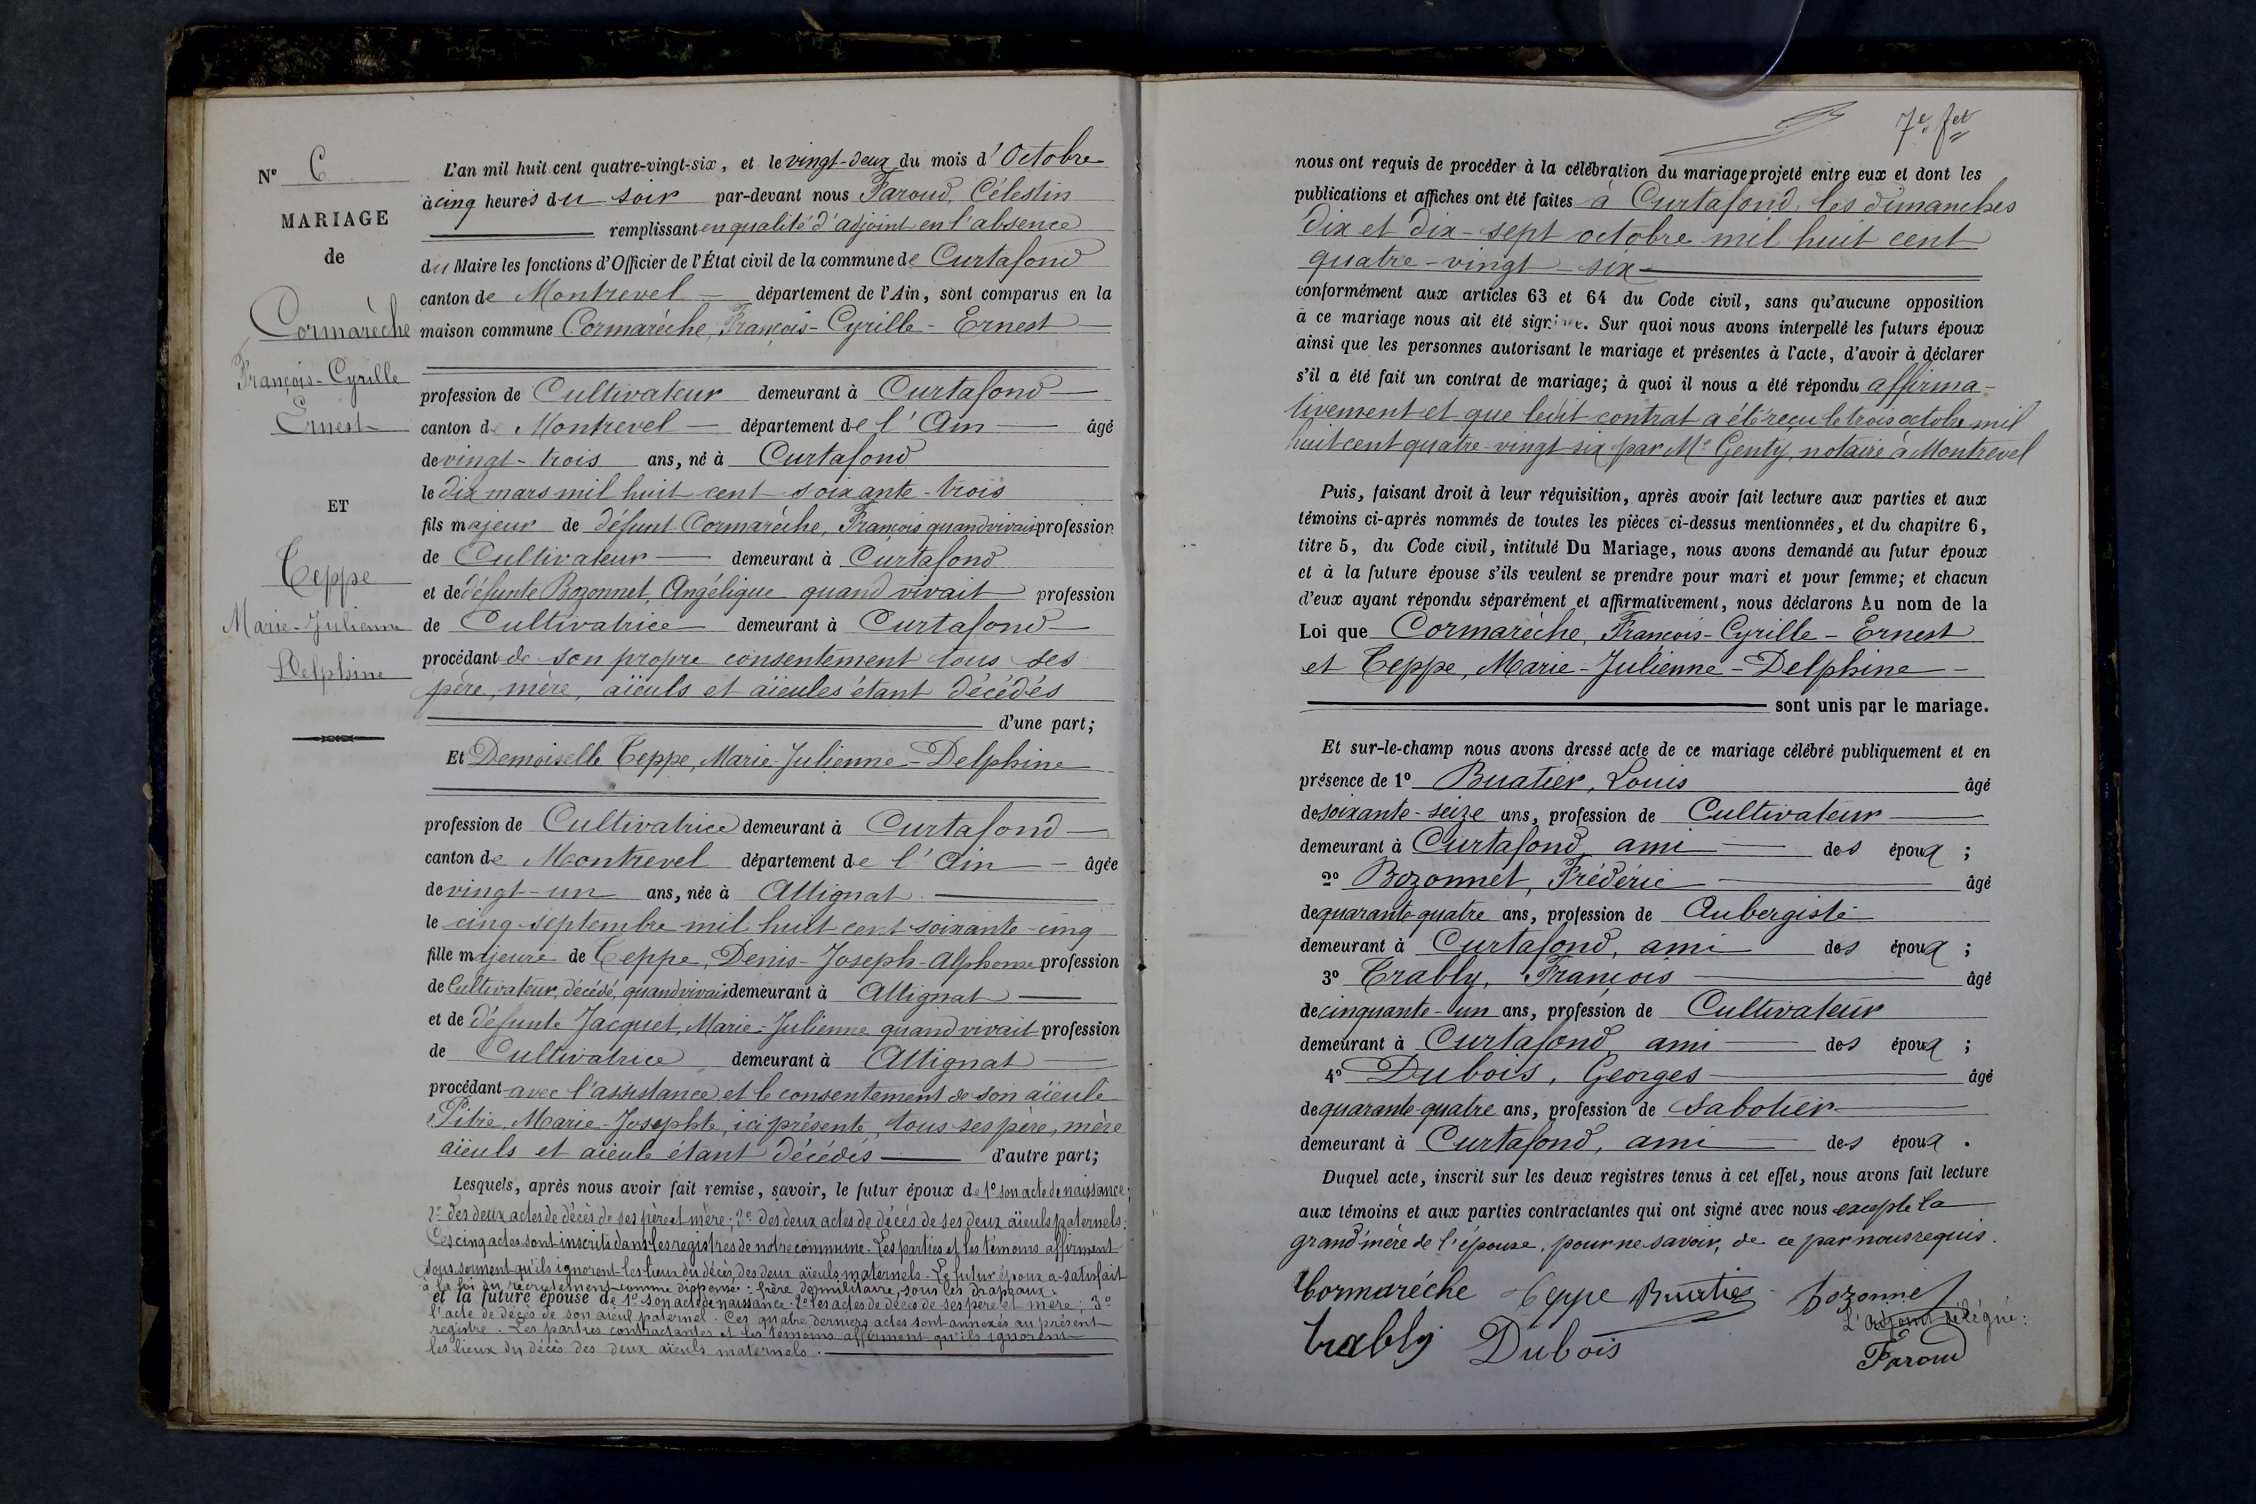 N° 6
MARIAGE
de
Cormarèche
François-Cyrille
Ernest
ET
Teppe
Marie-Julienne
Delphine
L'an mil huit cent quatre-vingt-six, et le vingt-deux du mois d'Octobre
à cinq heures du soir par-devant nous Faroud, Célestin
remplissant en qualité d'adjoint en l'absence
du Maire les fonctions d'Officier de l'État civil de la commune de Curtafond
canton de Montrevel département de l'Ain, sont comparus en la
maison commune Cormarèche, François-Cyrille-Ernest
profession de Cultivateur demeurant à Curtafond
canton de Montrevel département de l'Ain âgé
de vingt-trois ans, né à Curtafond
le dix mars mil huit cent soixante-trois
fils majeur de défunt Cormarèche, François quand vivait profession
de Cultivateur demeurant à Curtafond
et de défunte Bozonnet, Angélique quand vivait profession
de Cultivatrice demeurant à Curtafond
procédant de son propre consentement tous ses
père, mère, aïeuls et aïeules étant décédés
d'une part;
Et Demoiselle Teppe, Marie-Julienne-Delphine
profession de Cultivatrice demeurant à Curtafond
canton de Montrevel département de l'Ain âgée
de vingt-un ans, née à Attignat
le cinq septembre mil huit cent soixante-cinq
fille majeure de Teppe, Denis-Joseph-Alphonse profession
de Cultivateur, décédé, quand vivait demeurant à Attignat
et de défunte Jacquet, Marie-Julienne quand vivait profession
de Cultivatrice demeurant à Attignat
procédant avec l'assistance et le consentement de son aïeule
Pitre, Marie-Josephte, ici présente, tous ses père, mère
aïeuls et aïeule étant décédés d'autre part;
Lesquels, après nous avoir fait remise, savoir, le futur époux de 1° son acte de naissance;
2° des deux actes de décès de ses père et mère; 3° des deux actes de décès de ses deux aïeuls paternels.
Ces cinq actes sont inscrits dans les registres de notre commune. Les parties et les témoins affirment
sous serment qu'ils ignorent les lieux du décès des deux aïeuls maternels. Le futur époux a satisfait
à la loi du recrutement comme dispensé: frère de militaire sous les drapeaux.
et la future épouse de 1° son acte de naissance. 2° les actes de décès de ses père et mère; 3°
l'acte de décès de son aïeul paternel. Ces quatre derniers actes sont annexés au présent
registre. Les parties contractantes et les témoins affirment qu'ils ignorent
les lieux du décès des deux aïeuls maternels.
7e fet
nous ont requis de procéder à la célébration du mariage projeté entre eux et dont les
publications et affiches ont été faites à Curtafond les dimanches
dix et dix-sept octobre mil huit cent
quatre-vingt-six
conformément aux articles 63 et 64 du Code civil, sans qu'aucune opposition
à ce mariage nous ait été signifiée. Sur quoi nous avons interpellé les futurs époux
ainsi que les personnes autorisant le mariage et présentes à l'acte, d'avoir à déclarer
s'il a été fait un contrat de mariage; à quoi il nous a été répondu affirma-
tivement et que ledit contrat a été reçu le trois octobre mil
huit cent quatre-vingt-six par Me Genty, notaire à Montrevel
Puis, faisant droit à leur réquisition, après avoir fait lecture aux parties et aux
témoins ci-après nommés de toutes les pièces ci-dessus mentionnées, et du chapitre 6,
titre 5, du Code civil, intitulé Du Mariage, nous avons demandé au futur époux
et à la future épouse s'ils veulent se prendre pour mari et pour femme; et chacun
d'eux ayant répondu séparément et affirmativement, nous déclarons Au nom de la
Loi que Cormarèche, François-Cyrille-Ernest
et Teppe, Marie-Julienne-Delphine
sont unis par le mariage.
Et sur-le-champ nous avons dressé acte de ce mariage célébré publiquement et en
présence de 1° Buatier, Louis âgé
de soixante-seize ans, profession de Cultivateur
demeurant à Curtafond, ami des époux;
2° Bozonnet, Fréderic âgé
de quarante-quatre ans, profession de Aubergiste
demeurant à Curtafond, ami des époux;
3° Trably, François âgé
de cinquante-un ans, profession de Cultivateur
demeurant à Curtafond, ami des époux;
4° Dubois, Georges âgé
de quarante-quatre ans, profession de Sabotier
demeurant à Curtafond, ami des époux.
Duquel acte, inscrit sur les deux registres tenus à cet effet, nous avons fait lecture
aux témoins et aux parties contractantes qui ont signé avec nous excepté la
grand'mère de l'épouse, pour ne savoir, de ce par nous requis.
Cormarèche Teppe Buatier Bozonnet
L'adjoint délégué:
Trably Dubois Faroud